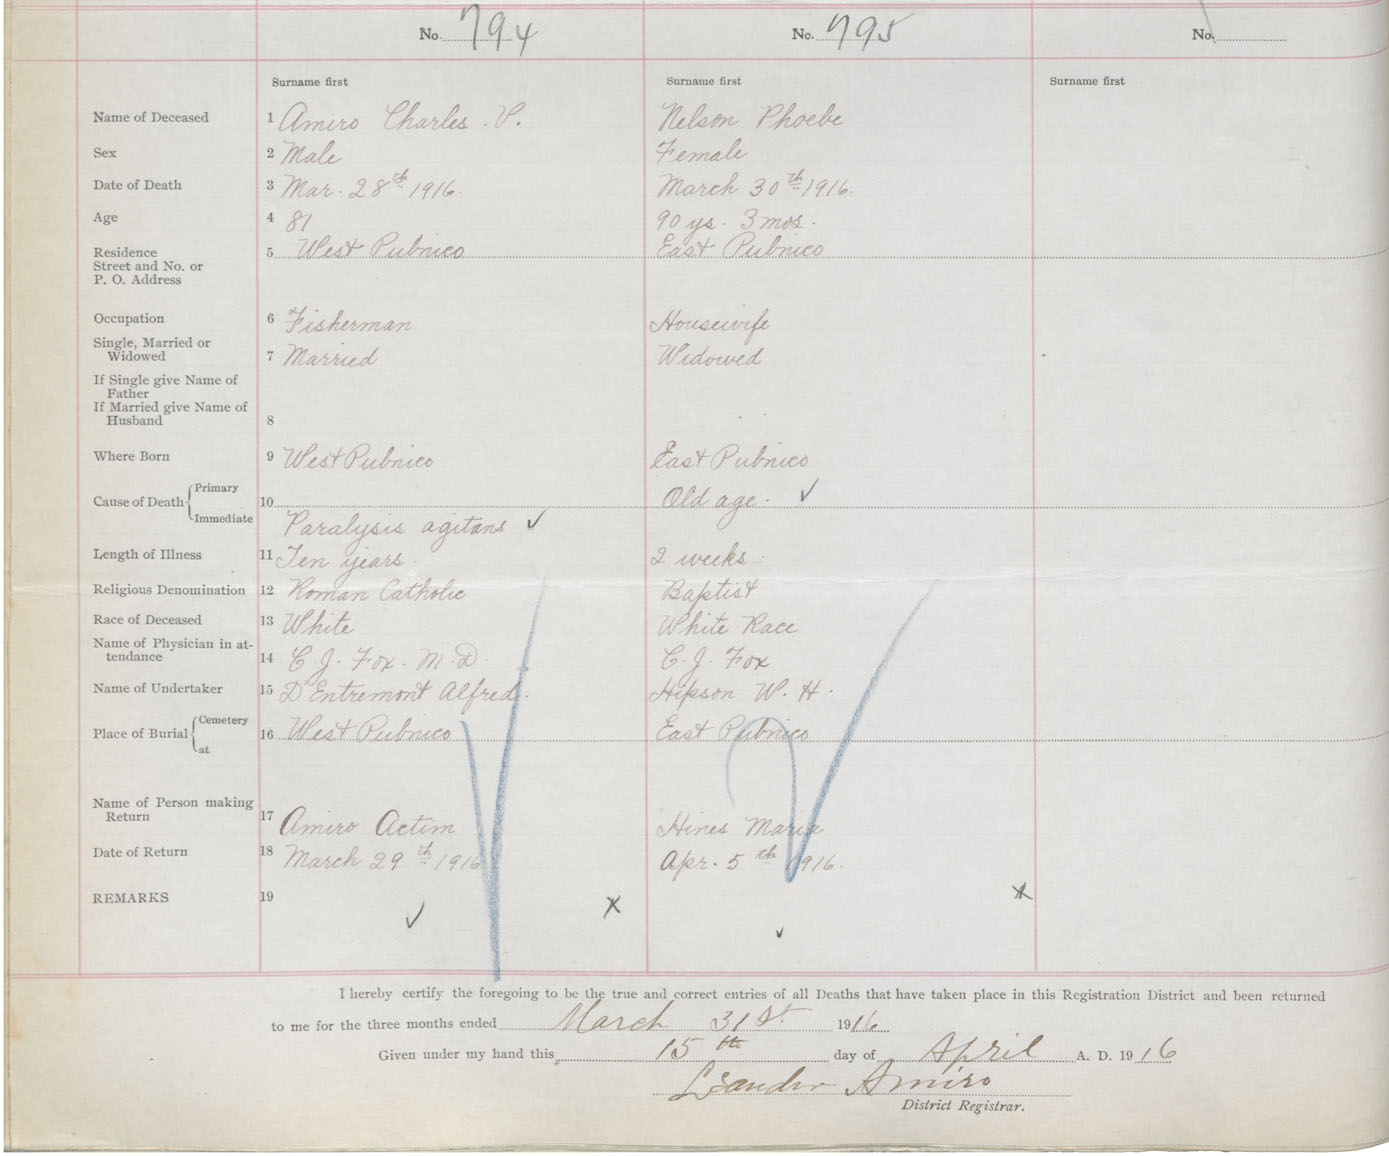 No. 794 No. 795 No.
Surname first Surname first Surname first
Name of Deceased 1 Amiro Charles . V. Nelson Phoebe
Sex 2 Male Female
Date of Death 3 Mar. 28th 1916. March 30th 1916.
Age 4 81 90 ys. 3 mos.
Residence 5 West Pubnico East Pubnico
Street and No. or
P. O. Address
Occupation 6 Fisherman Housewife
Single, Married or
Widowed 7 Married Widowed
If Single give Name of
Father
If Married give Name of
Husband 8
Where Born 9 West Pubnico East Pubnico
Primary
Cause of Death 10 Old age. ✓
Immediate Paralysis agitans ✓
Length of Illness 11 Ten years 2 weeks
Religious Denomination 12 Roman Catholic Baptist
Race of Deceased 13 White White Race
Name of Physician in at-
tendance 14 C. J. Fox. M.D. C. J. Fox
Name of Undertaker 15 D'Entremont Alfred. Hipson W. H.
Cemetery
Place of Burial 16 West Pubnico East Pubnico
at
Name of Person making
Return 17 Amiro Actim Hines Maria
Date of Return 18 March 29th 1916 Apr. 5th 1916.
REMARKS 19
I hereby certify the foregoing to be the true and correct entries of all Deaths that have taken place in this Registration District and been returned
to me for the three months ended March 31st 1916
Given under my hand this 15th day of April A. D. 1916
Leander Amiro
District Registrar.